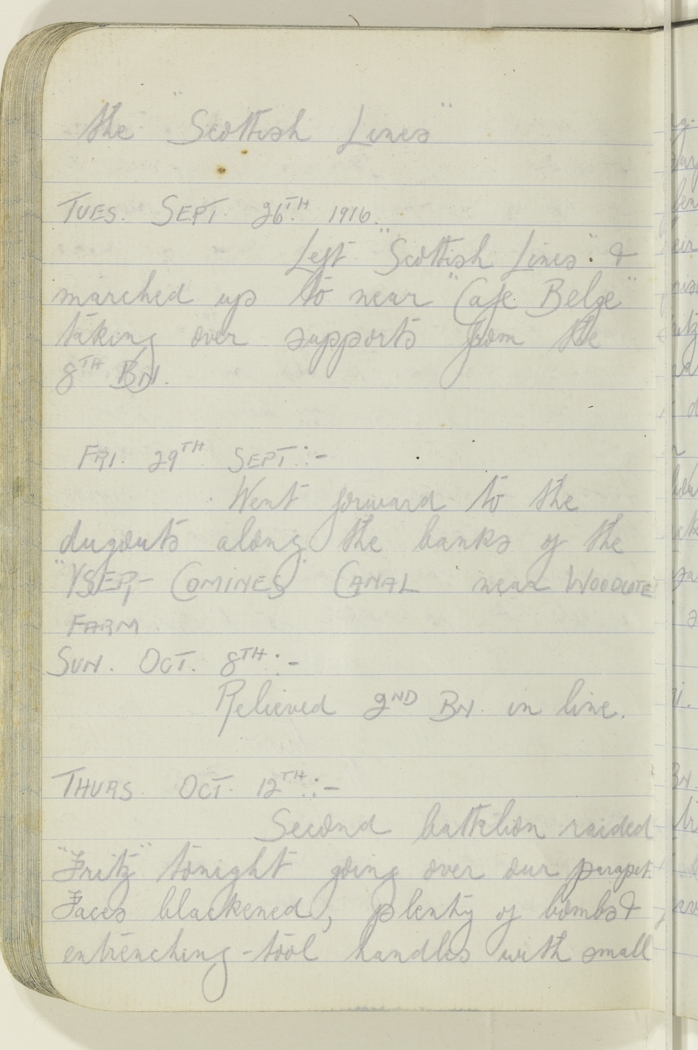 the "Scottish Lines"
TUES. SEPT. 26TH 1916.
Left "Scottish Lines" &
marched up to near "Cafe Belge"
taking over supports from the
8TH BN.
FRI. 29TH SEPT:-
Went forward to the
dugouts along the banks of the
"YSER-COMINES" CANAL near WOODCOTE
FARM.
SUN. OCT. 8TH:-
Relieved 2ND BN. in line.
THURS. OCT. 12TH:-
Second battelion raided
"Fritz" tonight going over our parapet.
Faces blackened, plenty of bombs &
entrenching-tool handles with small